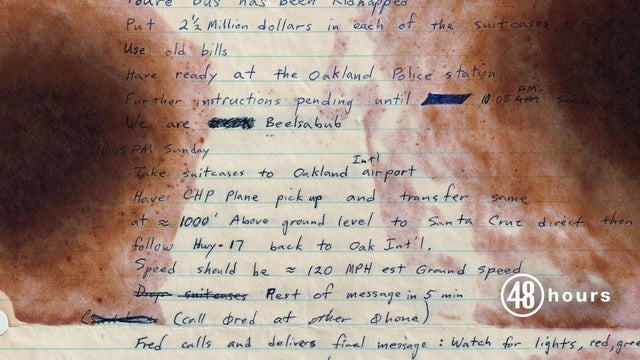 Youre bus has been Kidnapped
Put 2½ Million dollars in each of the suitcases
Use old bills
Have ready at the Oakland Police station
Further instructions pending until 10:05 AM PM Sunday
We are Beelsabub
10:05 PM Sunday
Take suitcases to Oakland Int'l airport
Have CHP Plane pick up and transfer same
at ≈ 1000' Above ground level to Santa Cruz direct then
follow Hwy-17 back to Oak Int'l.
Speed should be ≈ 120 MPH est Ground speed
Drop suitcases Rest of message in 5 min
(call Ored at other Phone)
Fred calls and delivers final message: Watch for lights, red, gree
48 hours